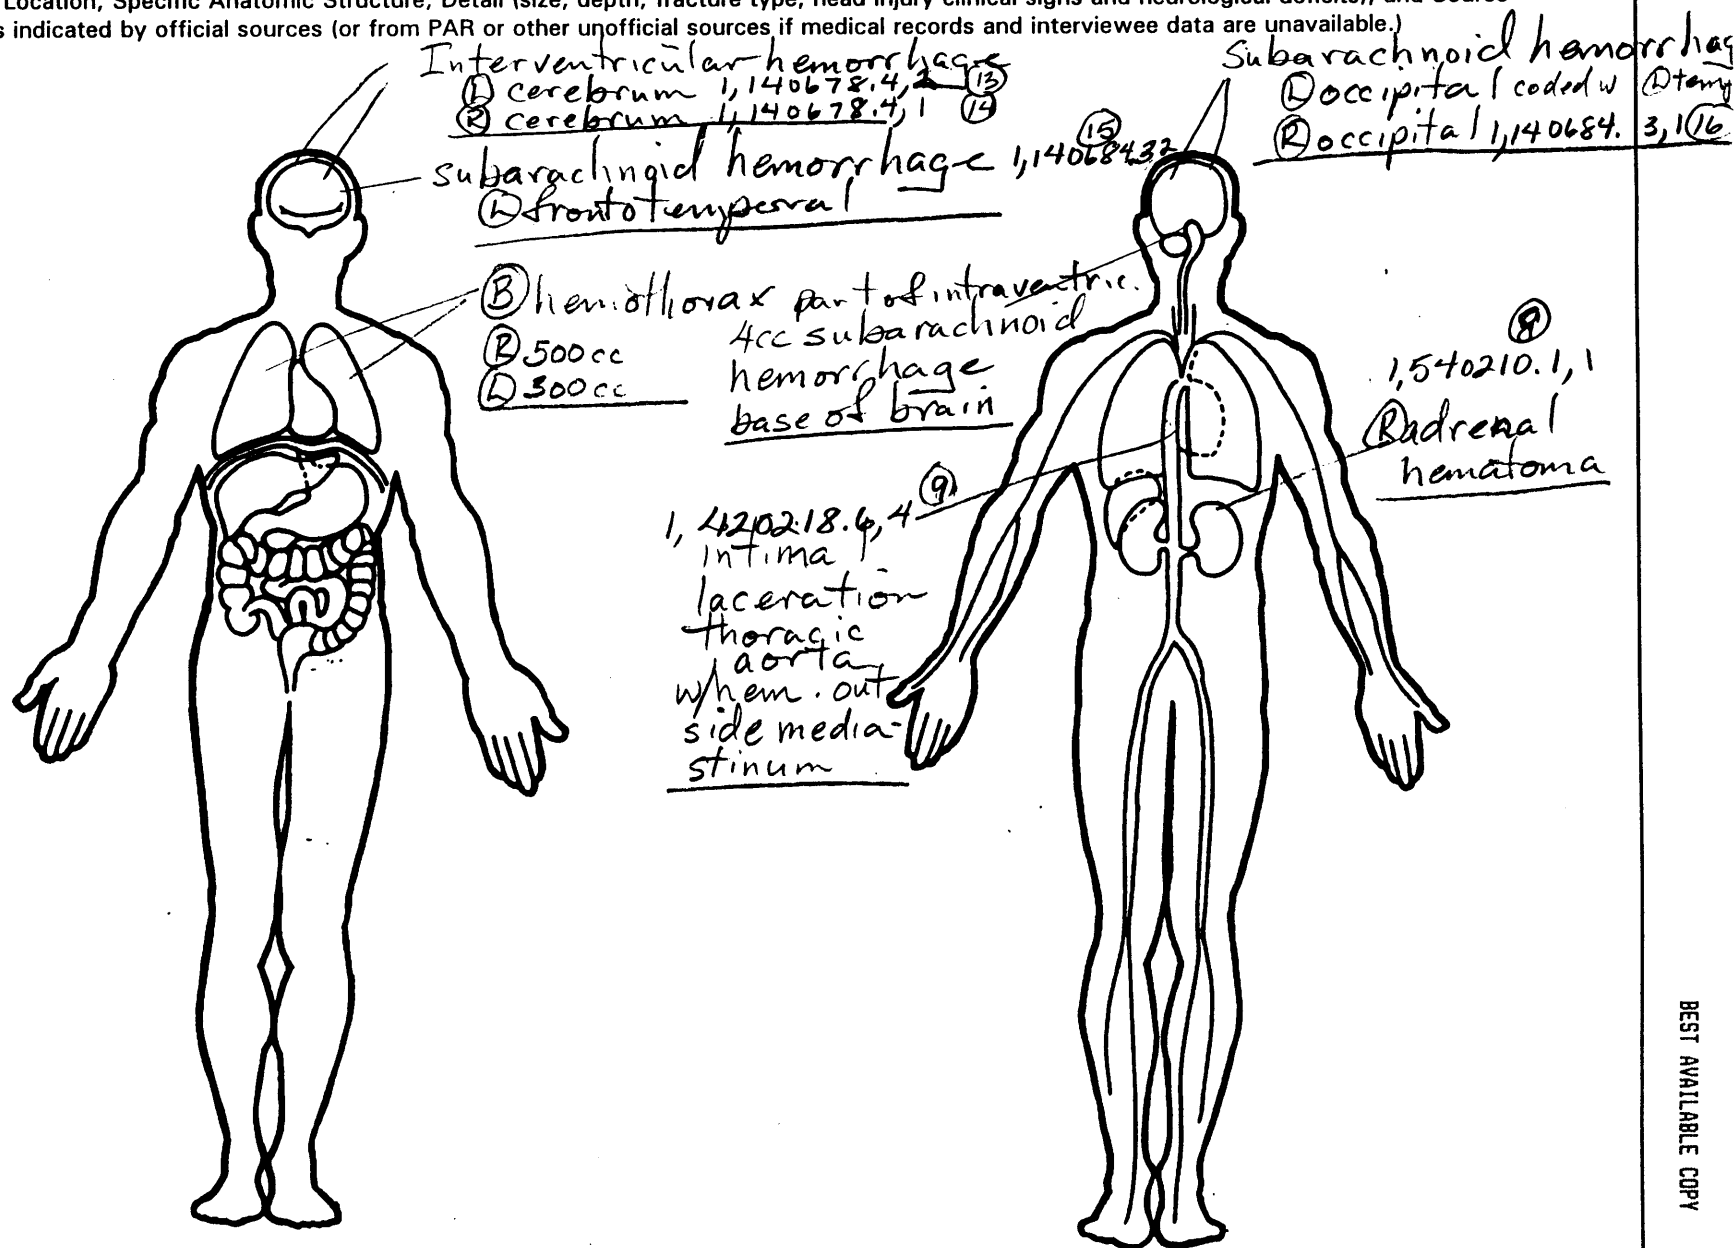 Location, Specific Anatomic Structure, Detail (size, depth, fracture type, head injury clinical signs and neurological deficits), and Source
s indicated by official sources (or from PAR or other unofficial sources if medical records and interviewee data are unavailable.)
Interventricular hemorrhage
Ⓛ cerebrum 1,140678.4,2 ⑬
Ⓡ cerebrum 1,140678.4,1 ⑭
Subarachnoid hemorrhag
Ⓛ occipital coded w Ⓛ temp
Ⓡ occipital 1,140684.3,1 ⑯
⑮
subarachnoid hemorrhage 1,140684.3,2
Ⓛ frontotemporal
Ⓑ hemothorax
Ⓡ 500cc
Ⓛ 300cc
part of intraventric.
4cc subarachnoid
hemorrhage
base of brain
⑧
1,540210.1,1
Ⓡ adrenal
hematoma
⑨
1, 420218.6,4
intima
laceration
thoracic
aorta
w/hem. out
side media-
stinum
BEST AVAILABLE COPY